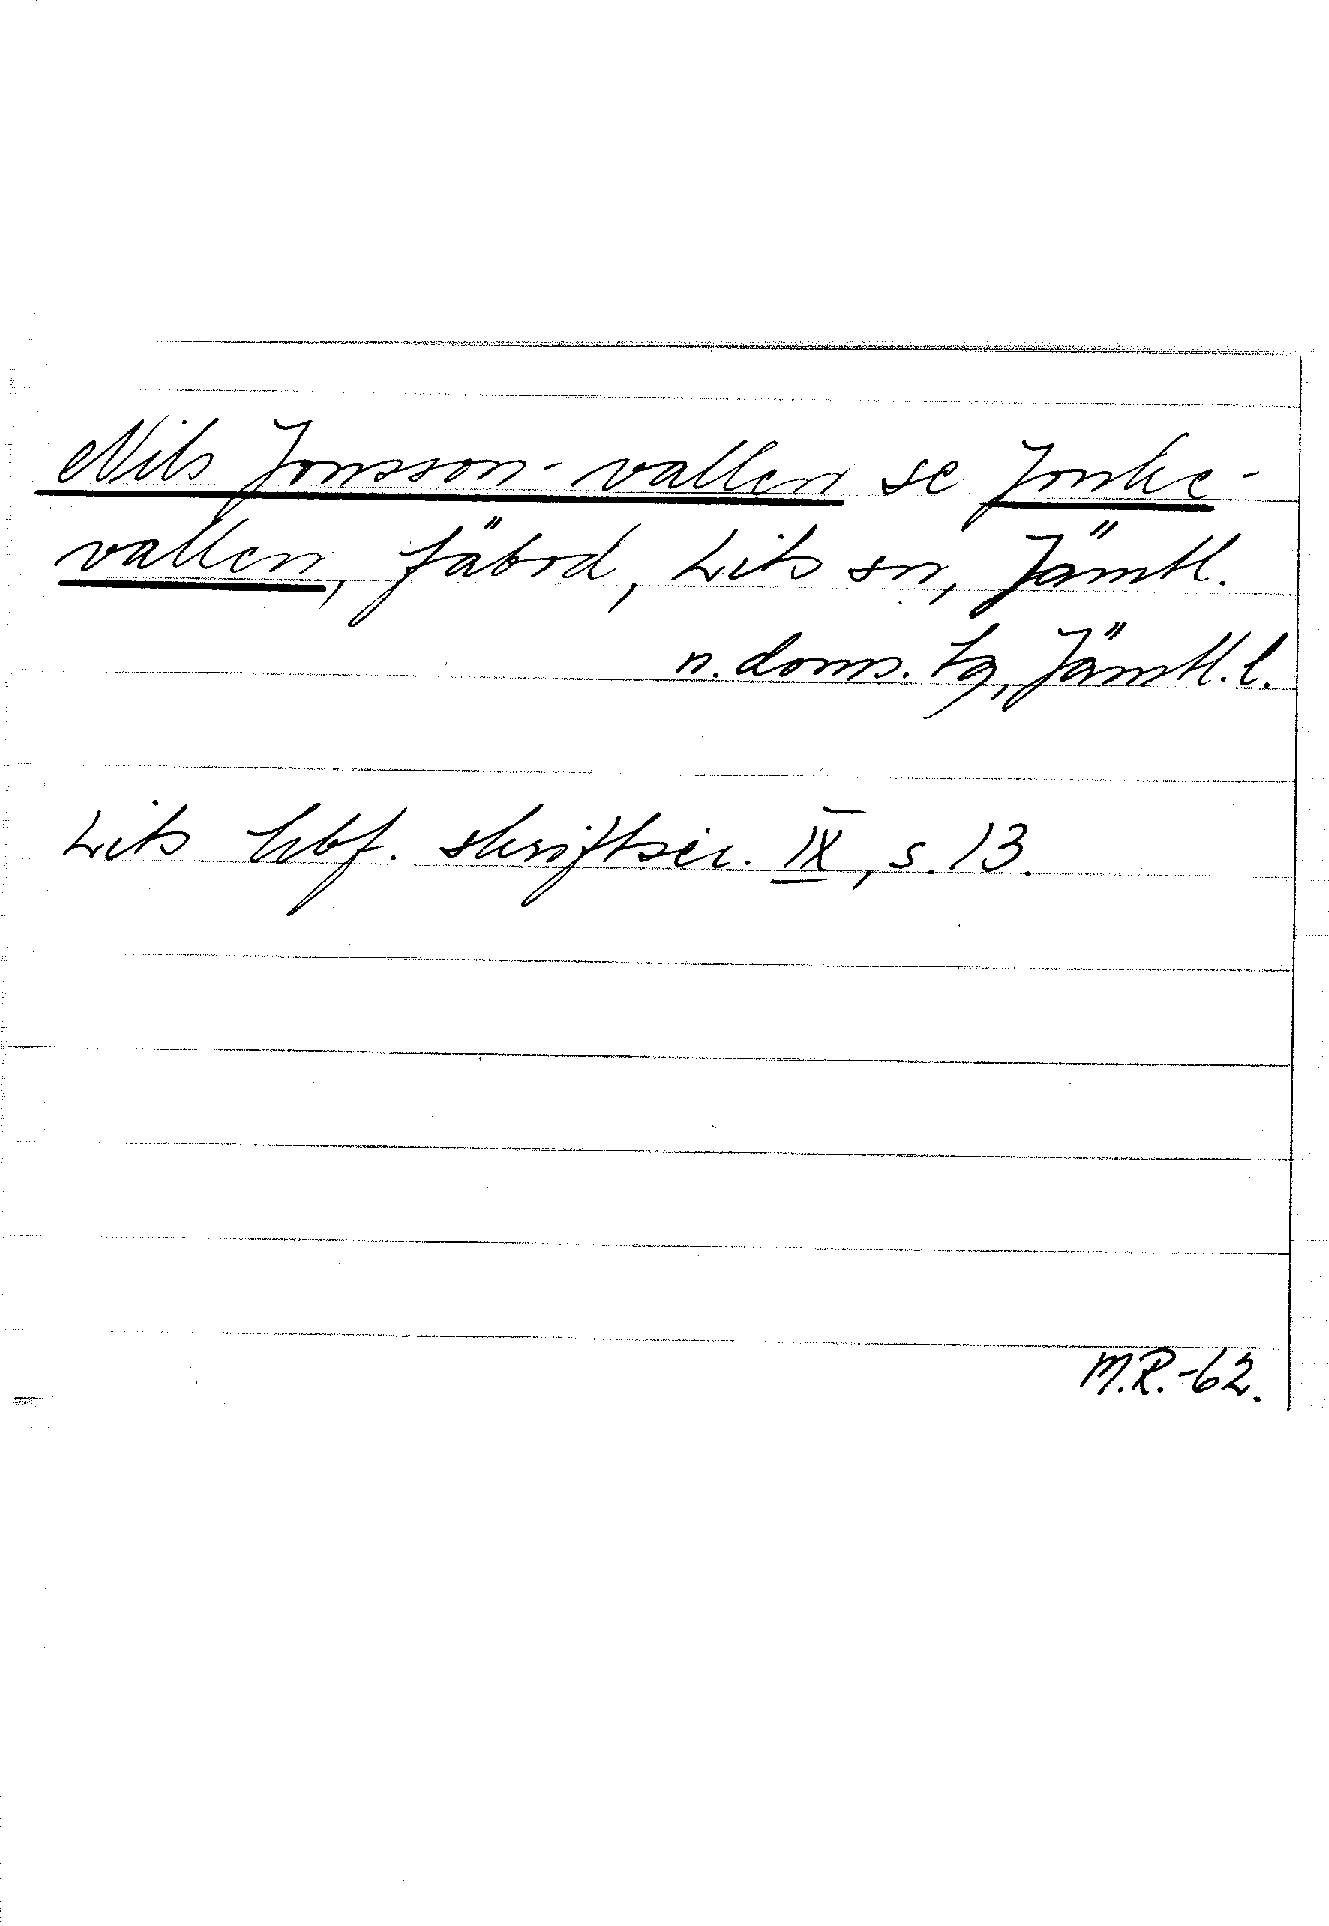 Nils Jonsson-vallen se Jonke-
vallen, fäbod, Lits sn, Jämtl.
n. doms. lg, Jämtl. l.
Lits hbf. skriftser. IX, s. 13.
M.R.-62.